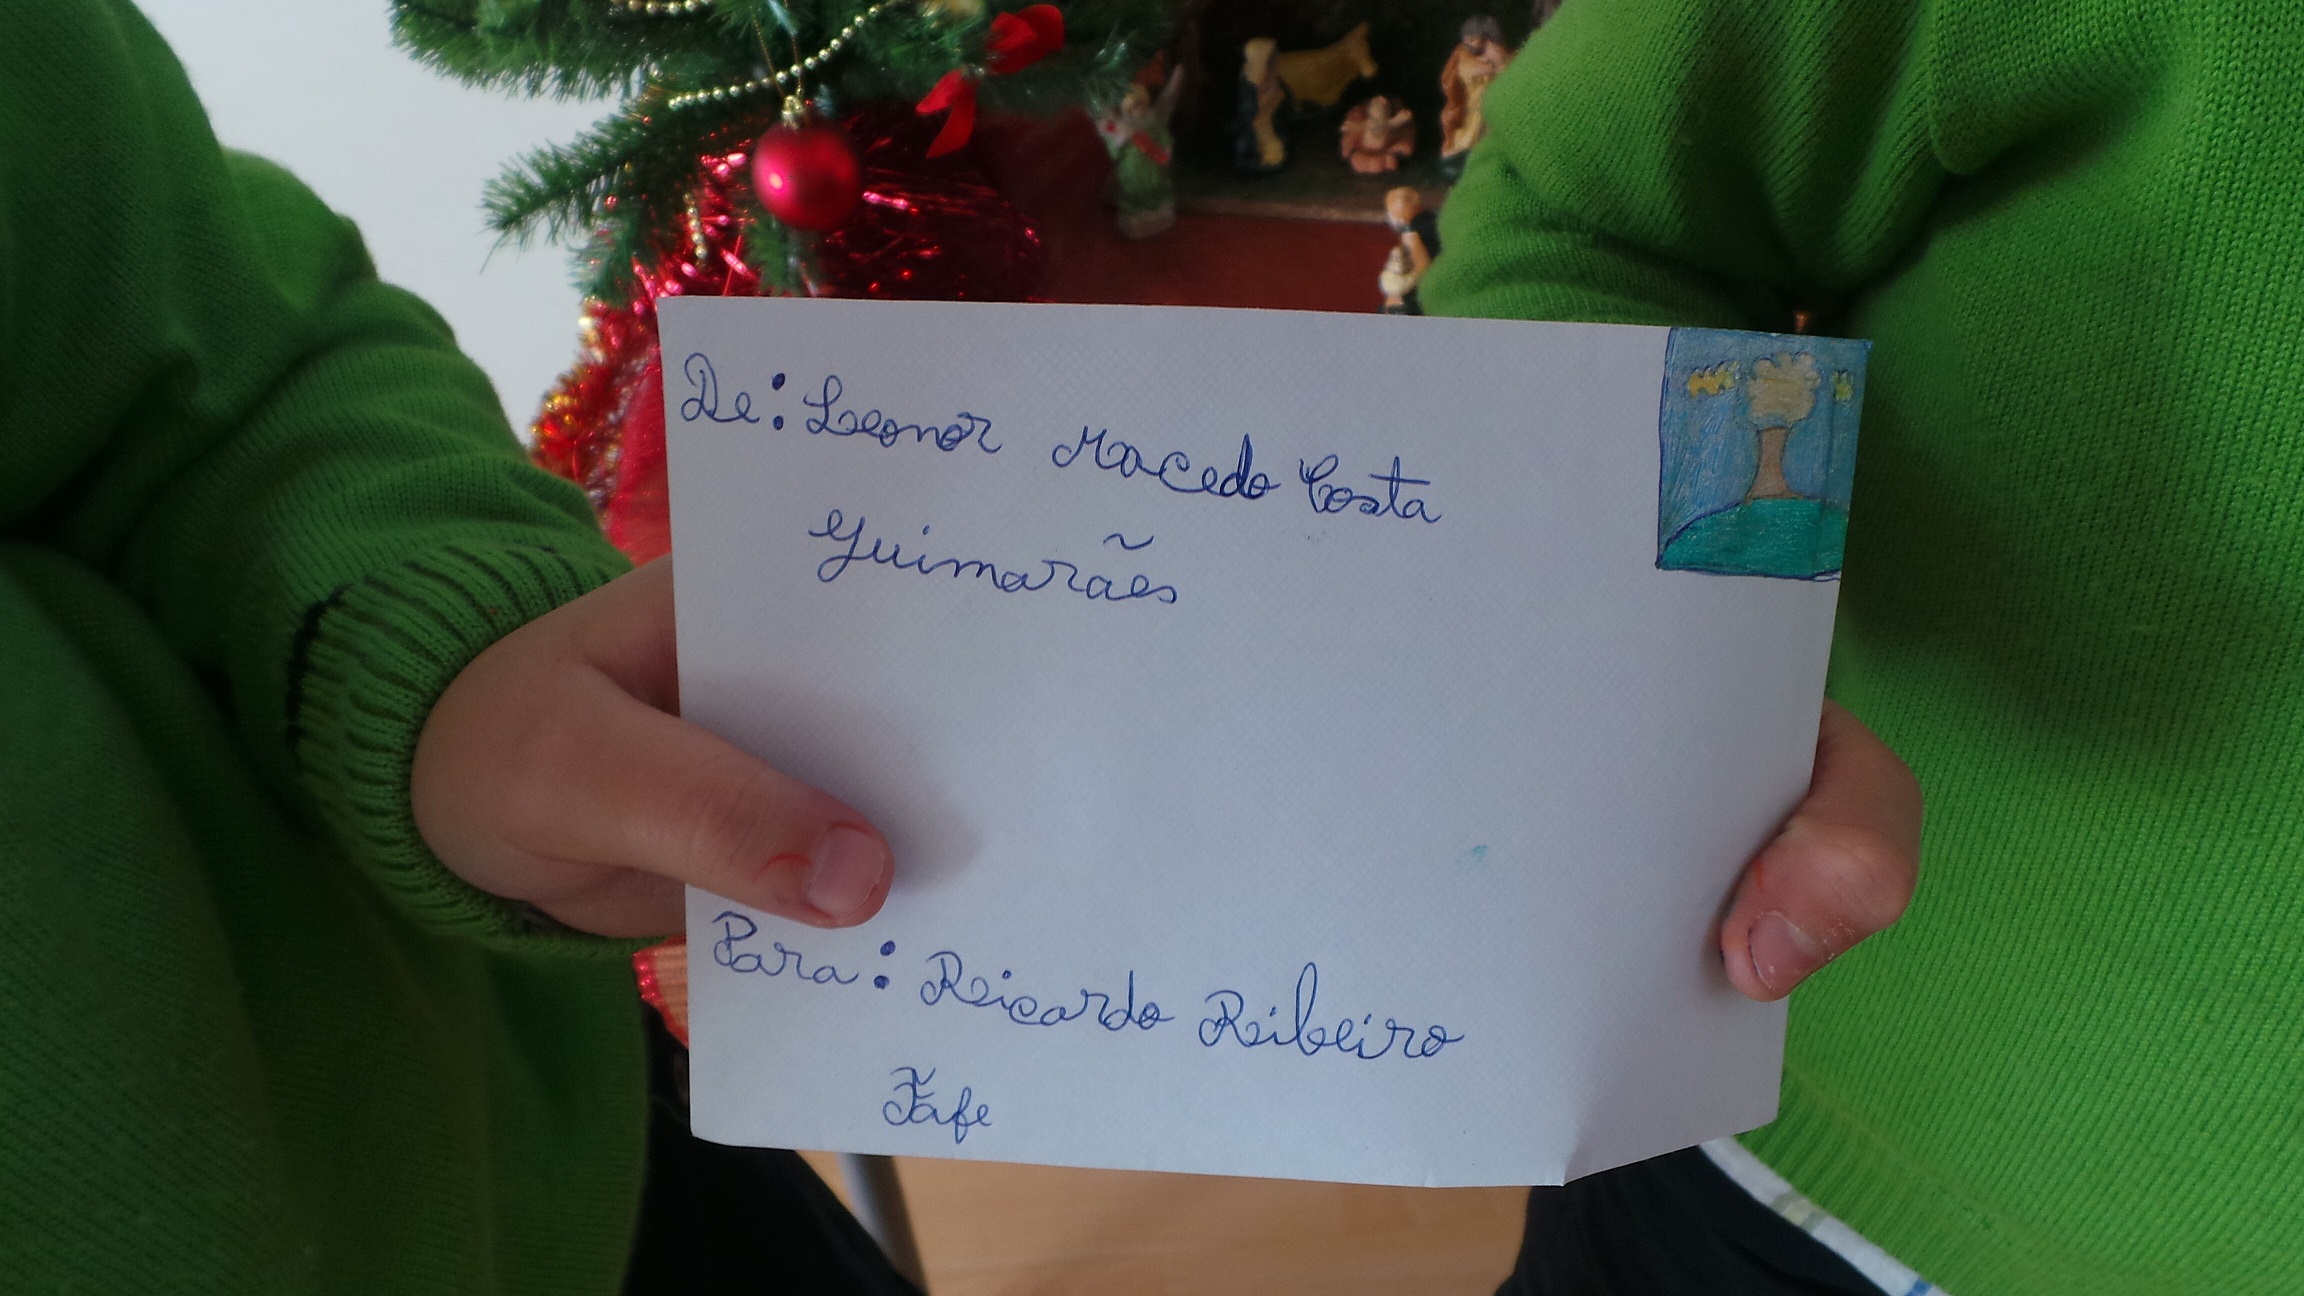 De: Leonor Macedo Costa
Guimarães
Para: Ricardo Ribeiro
Fafe